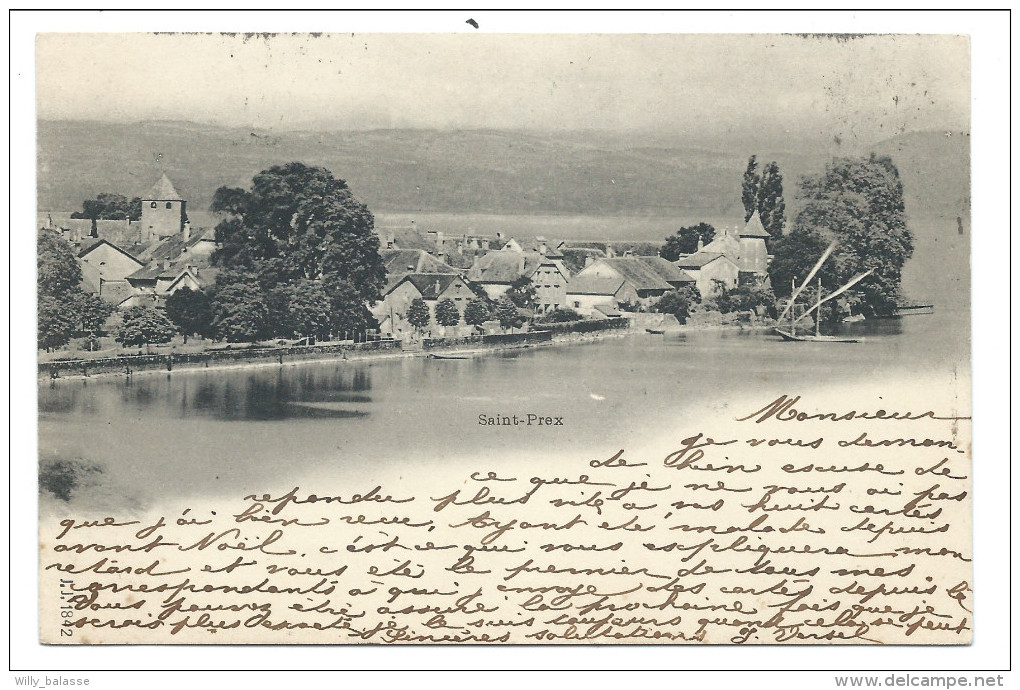 Saint-Prex
Monsieur
je vous deman-
de bien escuse de
ce que je ne vous ai pas
repondu plus vite a vos huit cartes
que j'ai bien recu, Ayant eté malade depuis
avant Noël, c'est ce qui vous esspliquera mon
retard et vous été le premier de tous mes
correspondants à qui j'envoye des cartes depuis le
Vous pouvez être assuré la prochaine fois que je
serois plus exact, je le suis toujours quand cela se peut
Sincères salutations J. Versel
J.J. 1842
Willy_balasse
www.delcampe.net